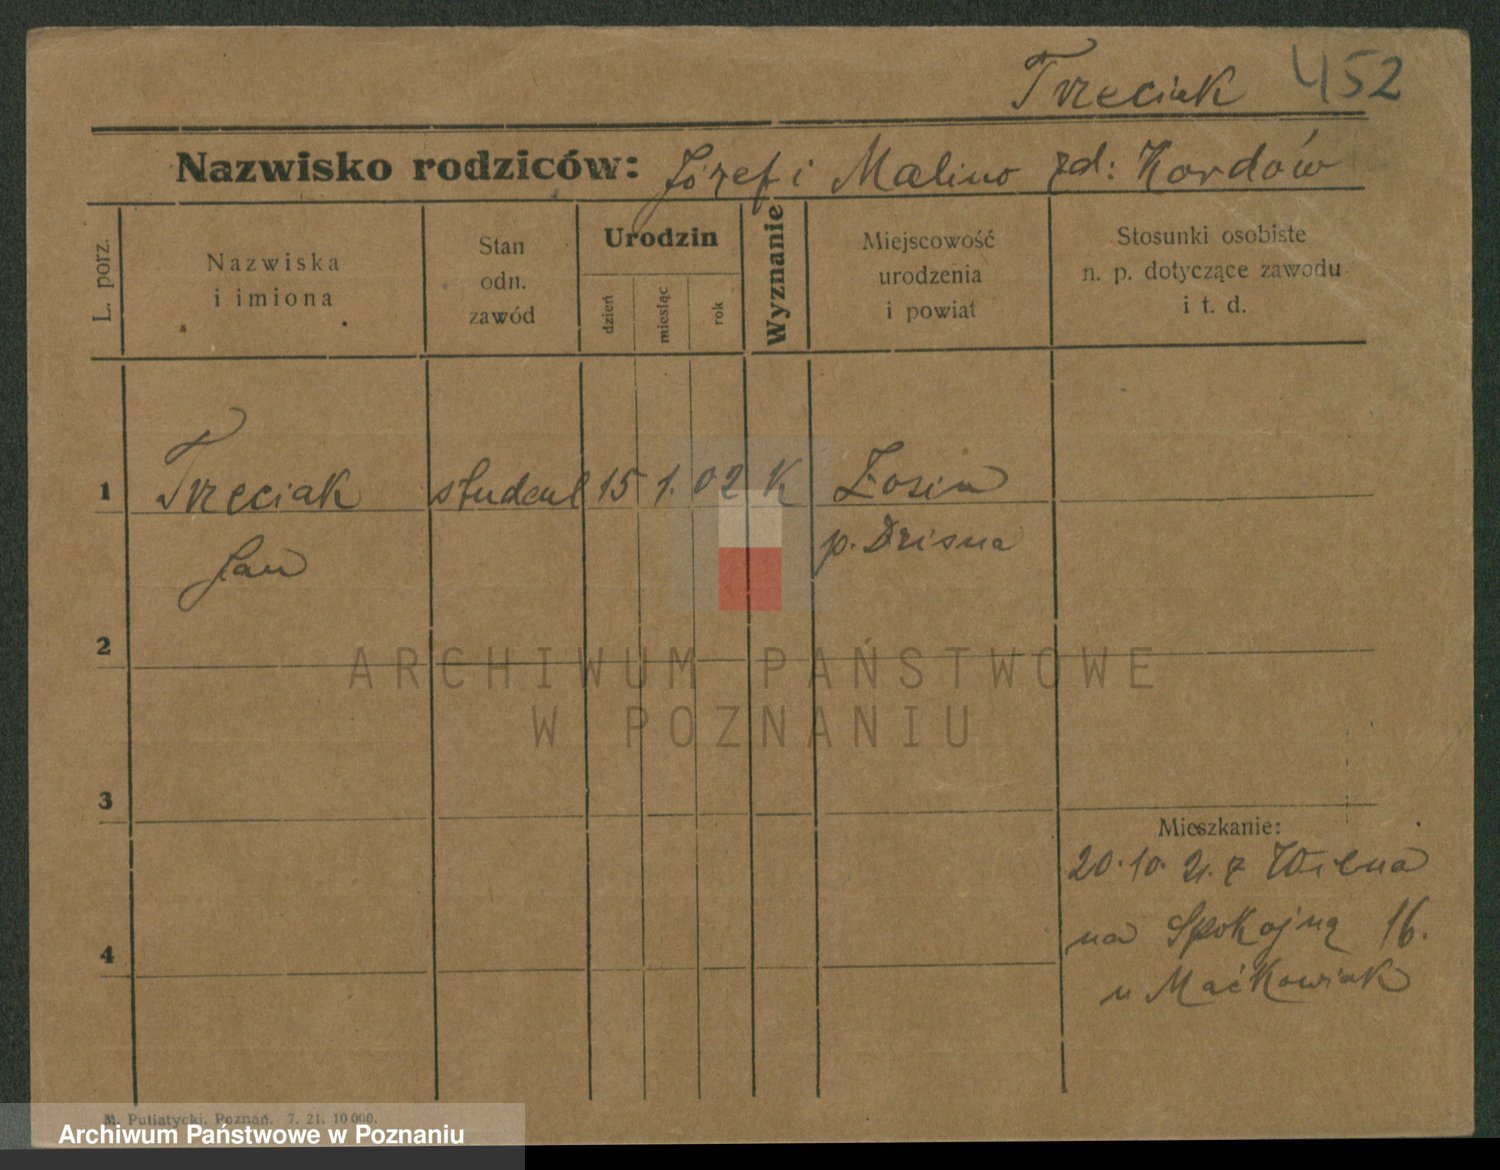 Trzeciak 452
Nazwisko rodziców: Józef i Malino zd: Kordów
L. porz.
Nazwiska
i imiona
Stan
odn.
zawód
Urodzin
dzień
miesiąc
rok
Wyznanie
Miejscowość
urodzenia
i powiat
Stosunki osobiste
n. p. dotyczące zawodu
i t. d.
1 Trzeciak student 15 1. 02 K Zosin
Jan p. Drisna
2
ARCHIWUM PAŃSTWOWE
W POZNANIU
3
Mieszkanie:
20.10. 21. z Wilna
na Spokojną 16.
4
u Maćkowiak
M. Putiatycki, Poznań. 7. 21. 10 000.
Archiwum Państwowe w Poznaniu